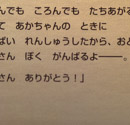 んでも ころんでも たちあがる
て あかちゃんの ときに
ぱい れんしゅうしたから、おと
さん ぼく がんばるよ――。
さん ありがとう！」